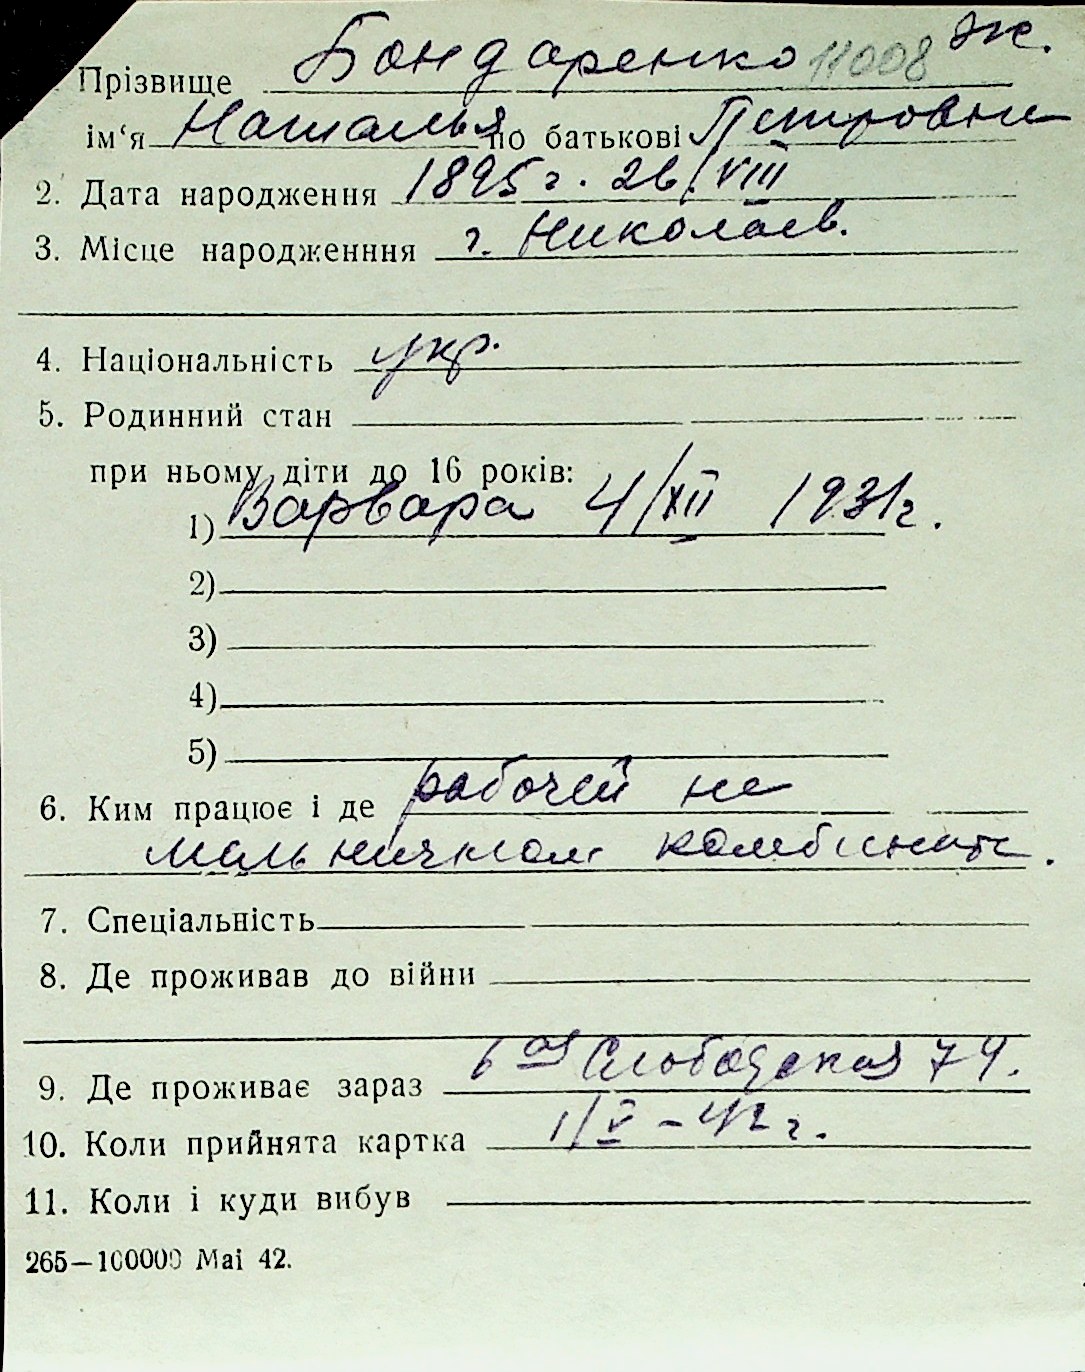 Прізвище Бондаренко 11008 Ж.
ім‘я Наталья по батькові Петровна
2. Дата народження 1895 г. 26/VIII
3. Місце народженння г. Николаев.
4. Національність укр.
5. Родинний стан
при ньому діти до 16 років:
1) Варвара 4/XII 1931 г.
2)
3)
4)
5)
6. Ким працює і де рабочей на
мельничном комбинате.
7. Спеціальність
8. Де проживав до війни
9. Де проживає зараз 6ая Слободская 74.
10. Коли прийнята картка 1/V-42 г.
11. Коли і куди вибув
265—100000 Маі 42.